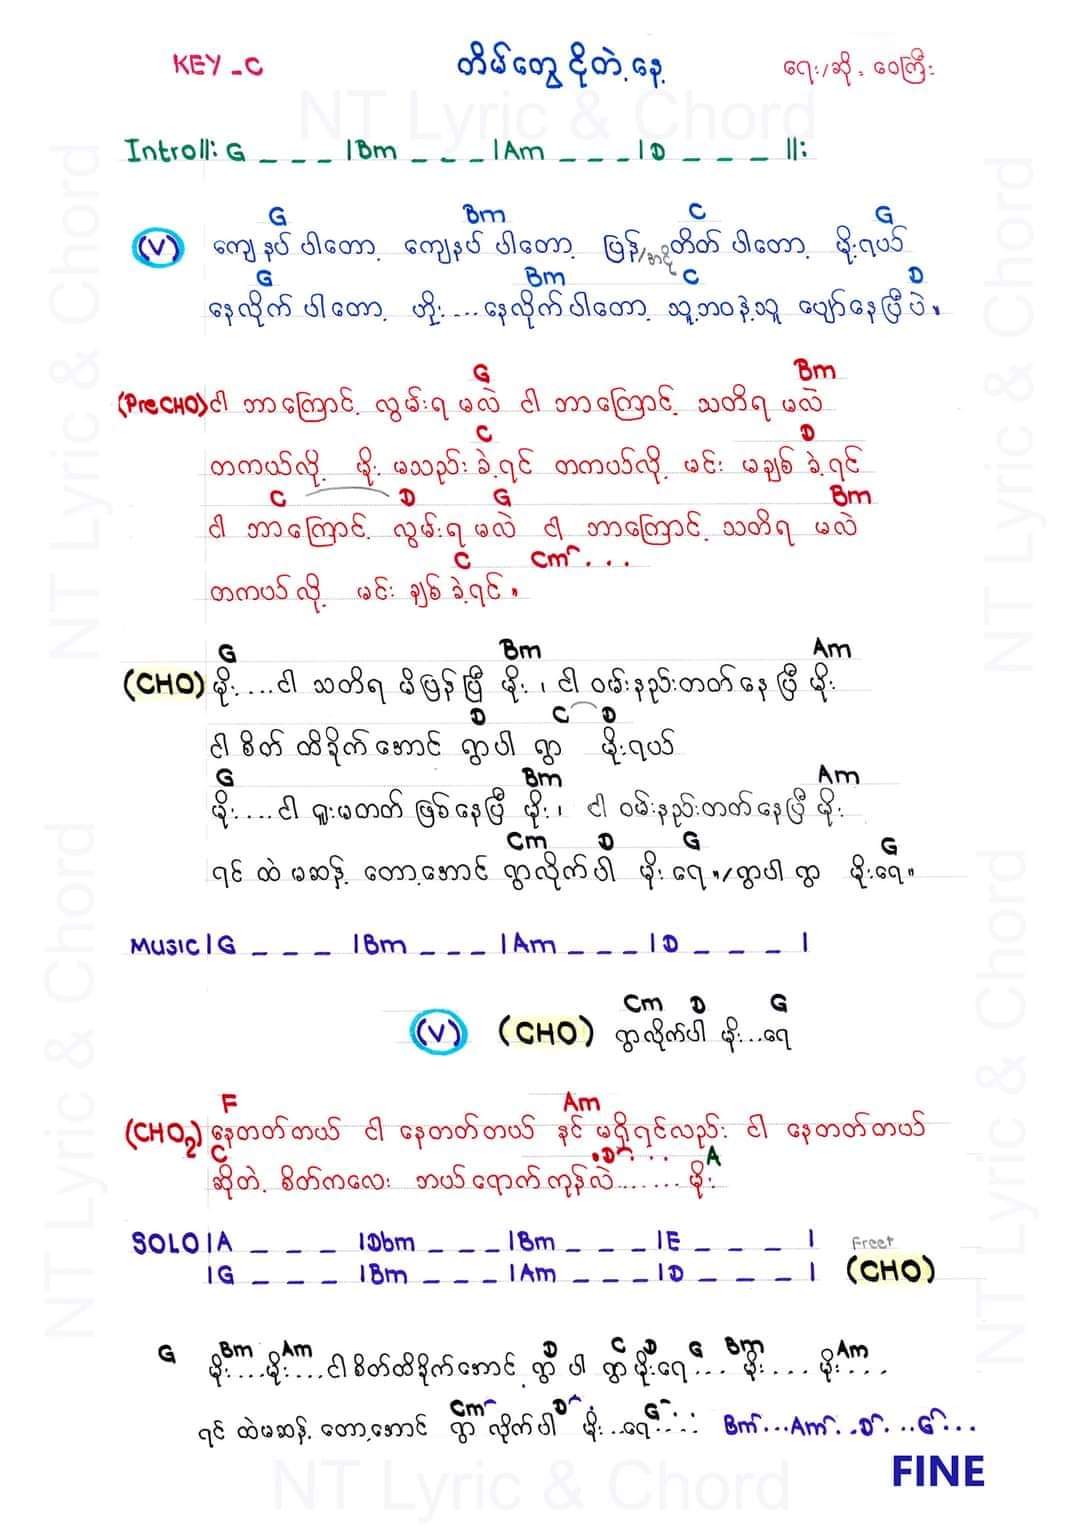 KEY - C တိမ်တွေ ငိုတဲ့ နေ့ ရေး/ဆို = ဝေကြီး
Intro ||: G _ _ _ | Bm _ _ _ | Am _ _ _ | D _ _ _ ||:
G Bm C G
(V) ကျေနပ် ပါတော့ ကျေနပ် ပါတော့ ပြန်/အငို တိတ် ပါတော့ မိုးရယ်
G Bm C D
နေလိုက် ပါတော့ ဟိုး....နေလိုက်ပါတော့ သူ့ဘဝနဲ့သူ ပျော်နေပြီပဲ။
G Bm
(Pre CHO) ငါ ဘာကြောင့် လွမ်းရ မလဲ ငါ ဘာကြောင့် သတိရ မလဲ
C D
တကယ်လို့ မိုး မသည်းခဲ့ရင် တကယ်လို့ မင်း မချစ် ခဲ့ရင်
C D G Bm
ငါ ဘာကြောင့် လွမ်းရ မလဲ ငါ ဘာကြောင့် သတိရ မလဲ
C Cm^ . . .
တကယ်လို့ မင်း ချစ်ခဲ့ရင်။
G Bm Am
(CHO) မိုး....ငါ သတိရ မိပြန်ပြီ မိုး၊ ငါ ဝမ်းနည်းတတ်နေပြီ မိုး
D C D
ငါ စိတ် ထိခိုက်အောင် ရွာပါ ရွာ မိုးရယ်
G Bm Am
မိုး....ငါ ရူးမတတ် ဖြစ်နေပြီ မိုး၊ ငါ ဝမ်းနည်းတတ်နေပြီ မိုး
Cm D G G
ရင် ထဲ မဆန့် တော့အောင် ရွာလိုက်ပါ မိုးရေ။/ရွာပါ ရွာ မိုးရေ။
MUSIC | G _ _ _ | Bm _ _ _ | Am _ _ _ | D _ _ _ |
Cm D G
(V) (CHO) ရွာလိုက်ပါ မိုး...ရေ
F Am
(CHO2) နေတတ်တယ် ငါ နေတတ်တယ် နင် မရှိရင်လည်း ငါ နေတတ်တယ်
C .D^. . . A
ဆိုတဲ့ စိတ်ကလေး ဘယ်ရောက်ကုန်လဲ.......မိုး
SOLO | A _ _ _ | Dbm _ _ _ | Bm _ _ _ | E _ _ _ | Freet
| G _ _ _ | Bm _ _ _ | Am _ _ _ | D _ _ _ | (CHO)
G Bm Am D C D G Bm Am
မိုး....မိုး....ငါစိတ်ထိခိုက်အောင် ရွာ ပါ ရွာ မိုးရေ... မိုး.... မိုး....
Cm^ D^. G^..
ရင် ထဲမဆန့် တော့အောင် ရွာ လိုက်ပါ မိုး...ရေ.... Bm^...Am^..D^...G^...
FINE
NT Lyric & Chord
NT Lyric & Chord
NT Lyric & Chord
NT Lyric & Chord
NT Lyric & Chord
NT Lyric & Chord